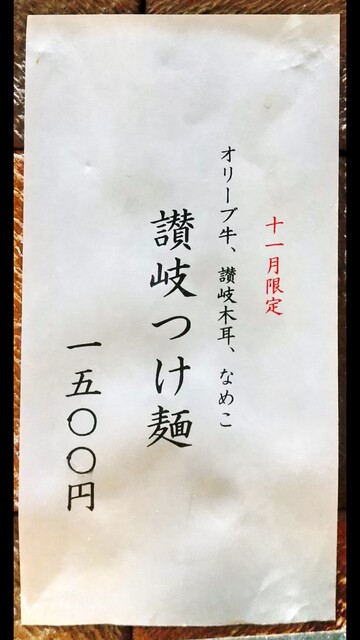 十一月限定
オリーブ牛、讃岐木耳、なめこ
讃岐つけ麺
一五〇〇円